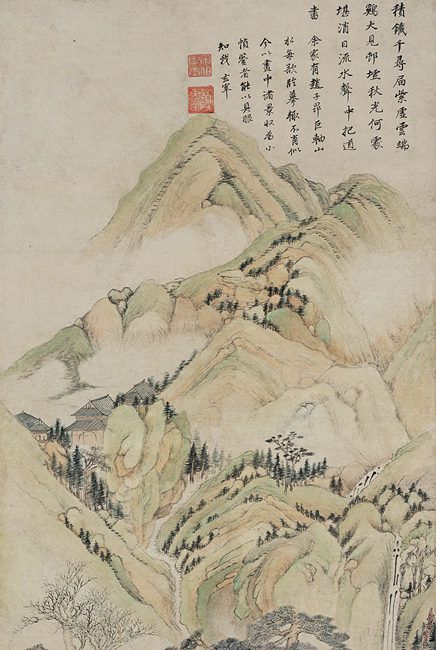 積鐵千尋屆紫虛雲端
鷄犬見邨墟秋光何處
堪消日流水聲中把道
書 余家有趙子昂巨軸山
每欲臨摹輒不肖似
今以畫中諸景收為小
幀鑒者能以具眼
知我 玄宰